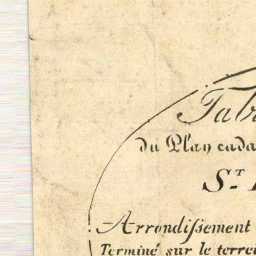 Tab
du Plan cada
S.T
Arrondissement
Terminé sur le terre